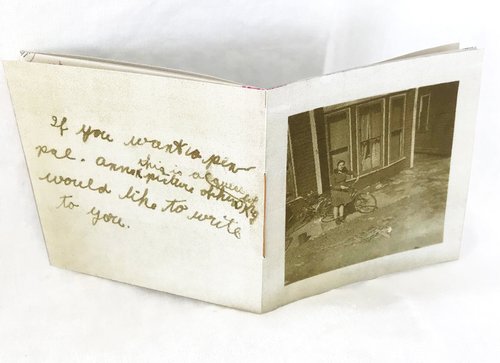 If you want a pen
pal. anna
this is a
picture
would like to write
to you.